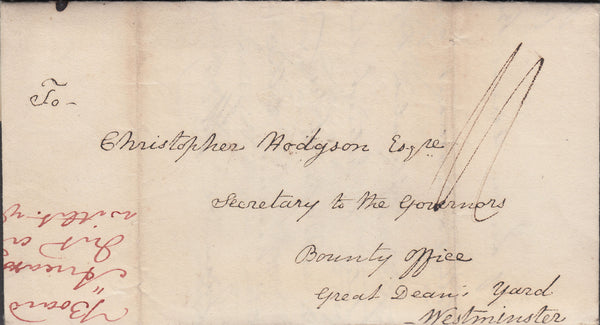 To -
Christopher Hodgson Esqre
Secretary to the Governors
Bounty Office
Great Dean's Yard
Westminster
Board